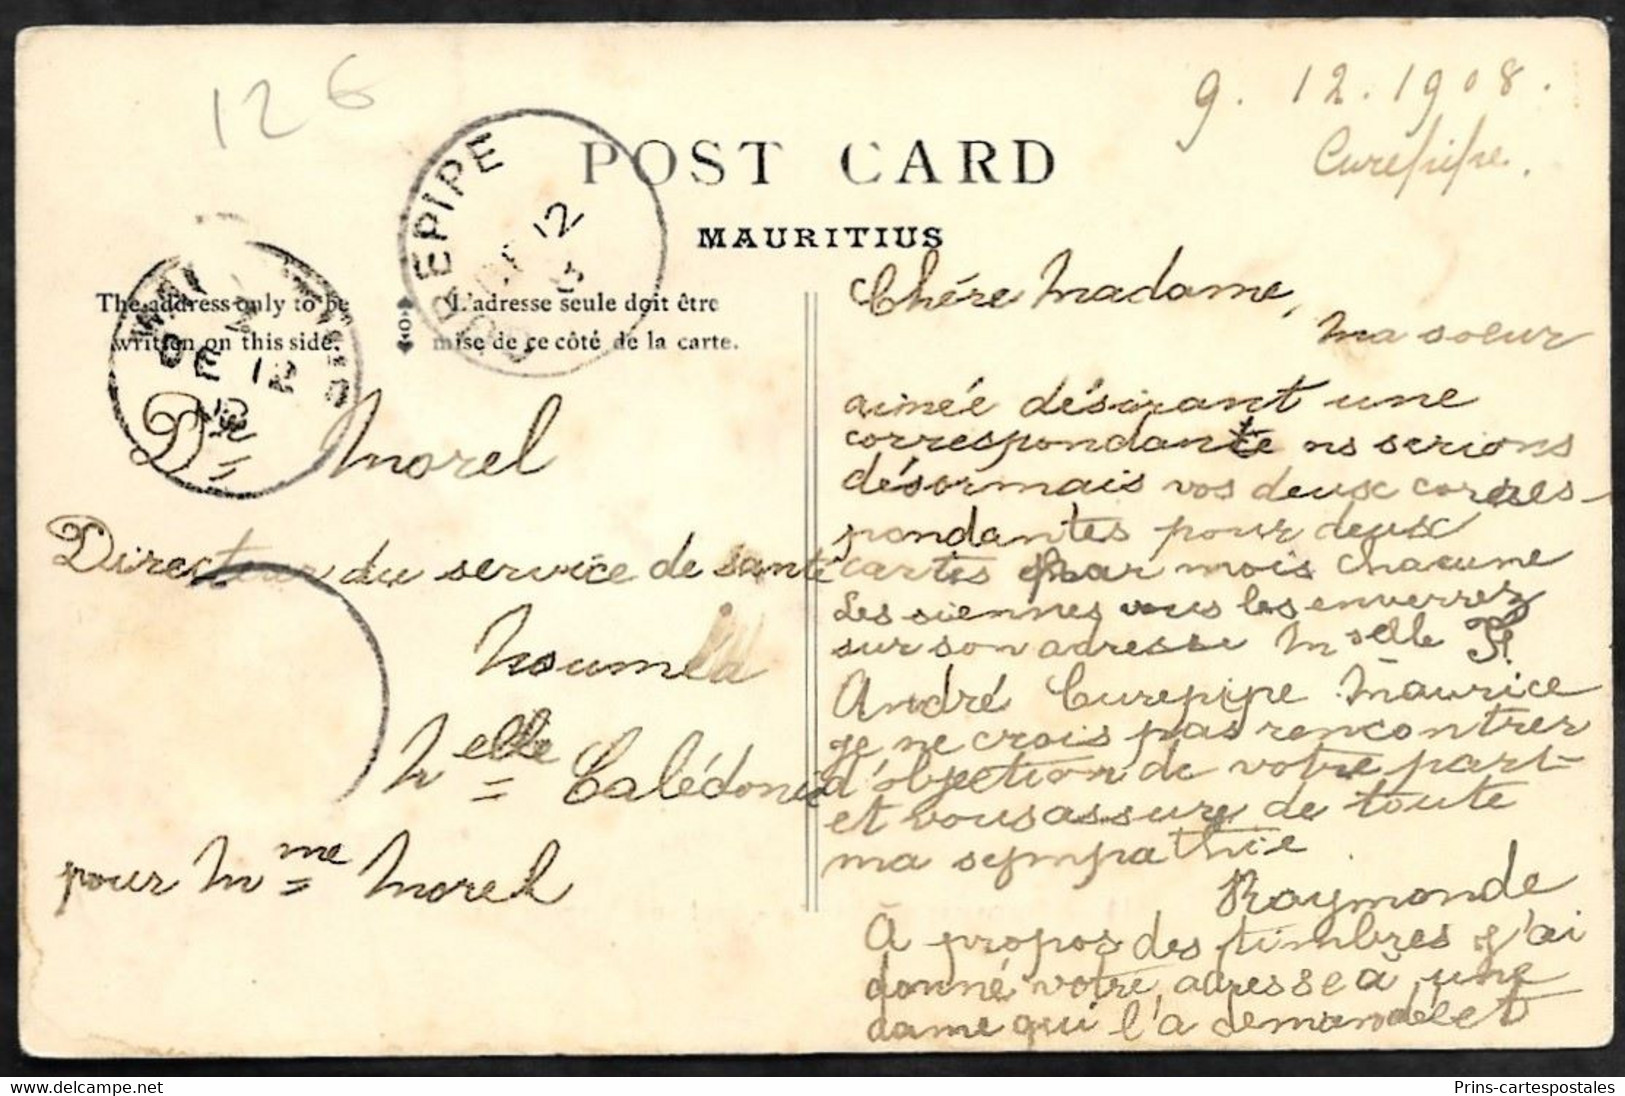 126
9.12.1908.
Curepipe.
POST CARD
MAURITIUS
CUREPIPE
DE 12
The address only to be
written on this side.
L'adresse seule doit être
mise de ce côté de la carte.
DE 12
Dr Morel
Directeur du service de santé
Nouméa
Nelle Calédonie
pour Mme Morel
Chére Madame,
ma soeur
aimée désirant une
correspondante ns serions
désormais vos deux corres-
pondantes pour deux
cartes par mois chacune
Les siennes vous les enverrez
sur son adresse Mselle
André Curepipe Maurice
je ne crois pas rencontrer
d'objection de votre part
et vous assure de toute
ma sympathie.
Raymonde
A propos des timbres j'ai
donné votre adresse à une
dame qui l'a demandé et
Prins-cartespostales